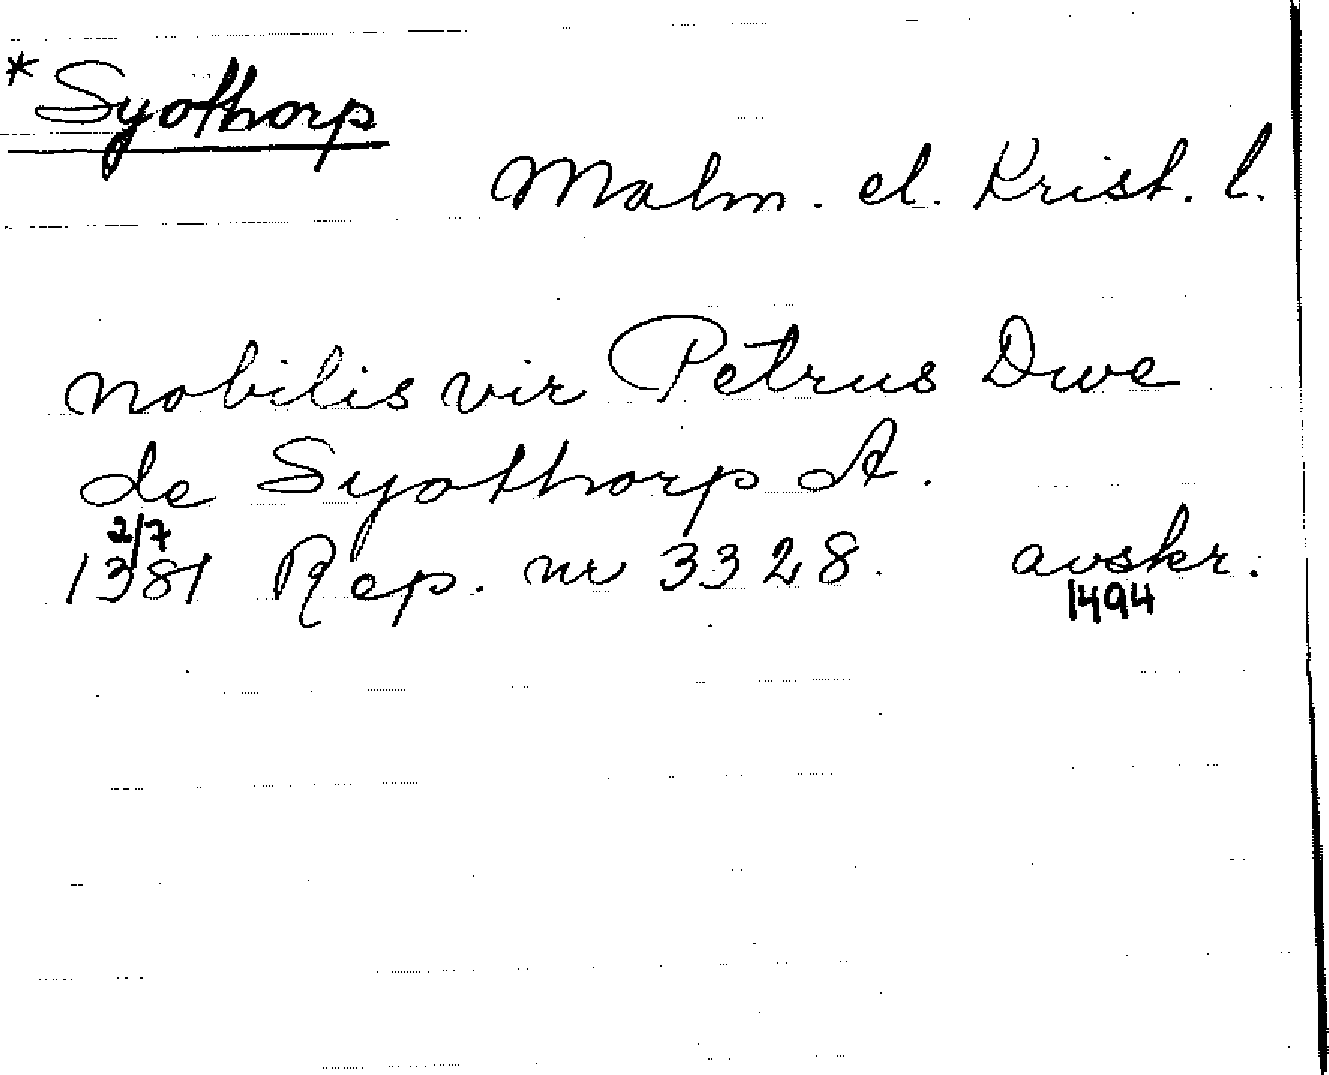 *Syothorp
Malm. el. Krist. l.
nobilis vir Petrus Dwe
de Syothorp A.
2/7
1381 Rep. nr 3328. avskr.
1494